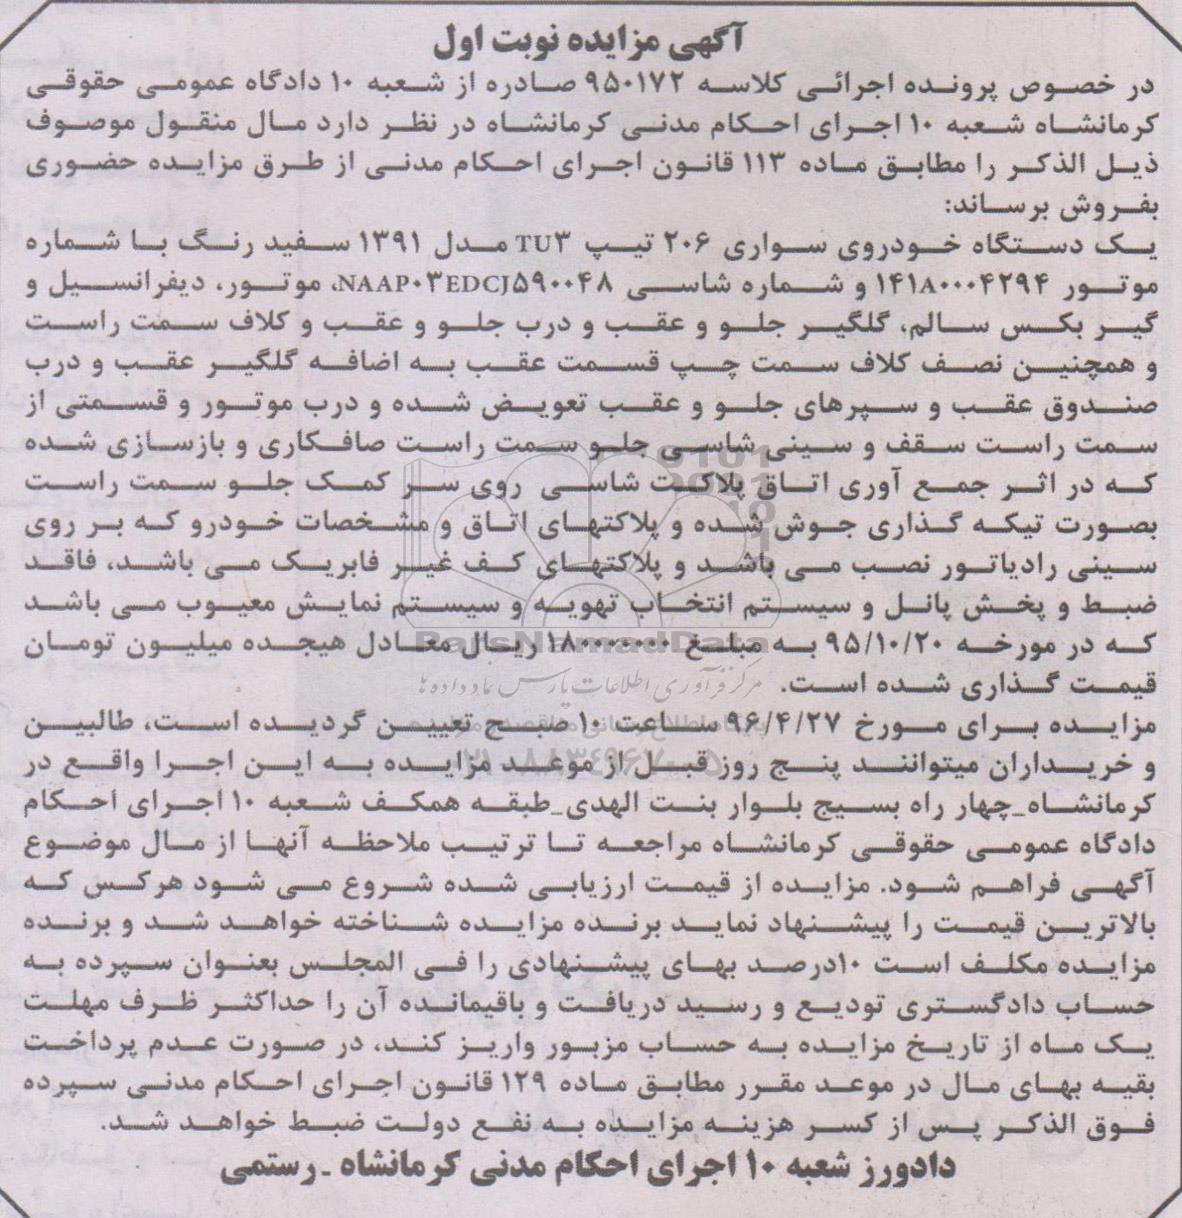 آگهی مزایده نوبت اول
در خصوص پرونده اجرائی کلاسه ۹۵۰۱۷۲ صادره از شعبه ۱۰ دادگاه عمومی حقوقی
کرمانشاه شعبه ۱۰ اجرای احکام مدنی کرمانشاه در نظر دارد مال منقول موصوف
ذیل الذکر را مطابق ماده ۱۱۳ قانون اجرای احکام مدنی از طرق مزایده حضوری
بفروش برساند:
یک دستگاه خودروی سواری ۲۰۶ تیپ TU۳ مدل ۱۳۹۱ سفید رنگ با شماره
موتور ۱۴۱A۰۰۰۴۲۹۴ و شماره شاسی NAAP۰۳EDCJ۵۹۰۰۴۸، موتور، دیفرانسیل و
گیر بکس سالم، گلگیر جلو و عقب و درب جلو و عقب و کلاف سمت راست
و همچنین نصف کلاف سمت چپ قسمت عقب به اضافه گلگیر عقب و درب
صندوق عقب و سپرهای جلو و عقب تعویض شده و درب موتور و قسمتی از
سمت راست سقف و سینی شاسی جلو سمت راست صافکاری و بازسازی شده
که در اثر جمع آوری اتاق پلاکت شاسی روی سر کمک جلو سمت راست
بصورت تیکه گذاری جوش شده و پلاکتهای اتاق و مشخصات خودرو که بر روی
سینی رادیاتور نصب می باشد و پلاکتهای کف غیر فابریک می باشد، فاقد
ضبط و پخش پانل و سیستم انتخاب تهویه و سیستم نمایش معیوب می باشد
ParsNamadData
که در مورخه ۹۵/۱۰/۲۰ به مبلغ ۱۸۰۰۰۰۰۰۰ ریال معادل هیجده میلیون تومان
قیمت گذاری شده است.
مرکز فرآوری اطلاعات پارس نماد داده ها
مزایده برای مورخ ۹۶/۴/۲۷ ساعت ۱۰ صبح تعیین گردیده است، طالبین
و خریداران میتوانند پنج روز قبل از موعد مزایده به این اجرا واقع در
کرمانشاه_چهار راه بسیج بلوار بنت الهدی_طبقه همکف شعبه ۱۰ اجرای احکام
دادگاه عمومی حقوقی کرمانشاه مراجعه تا ترتیب ملاحظه آنها از مال موضوع
آگهی فراهم شود. مزایده از قیمت ارزیابی شده شروع می شود هرکس که
بالاترین قیمت را پیشنهاد نماید برنده مزایده شناخته خواهد شد و برنده
مزایده مکلف است ۱۰درصد بهای پیشنهادی را فی المجلس بعنوان سپرده به
حساب دادگستری تودیع و رسید دریافت و باقیمانده آن را حداکثر ظرف مهلت
یک ماه از تاریخ مزایده به حساب مزبور واریز کند، در صورت عدم پرداخت
بقیه بهای مال در موعد مقرر مطابق ماده ۱۲۹ قانون اجرای احکام مدنی سپرده
فوق الذکر پس از کسر هزینه مزایده به نفع دولت ضبط خواهد شد.
دادورز شعبه ۱۰ اجرای احکام مدنی کرمانشاه _رستمی